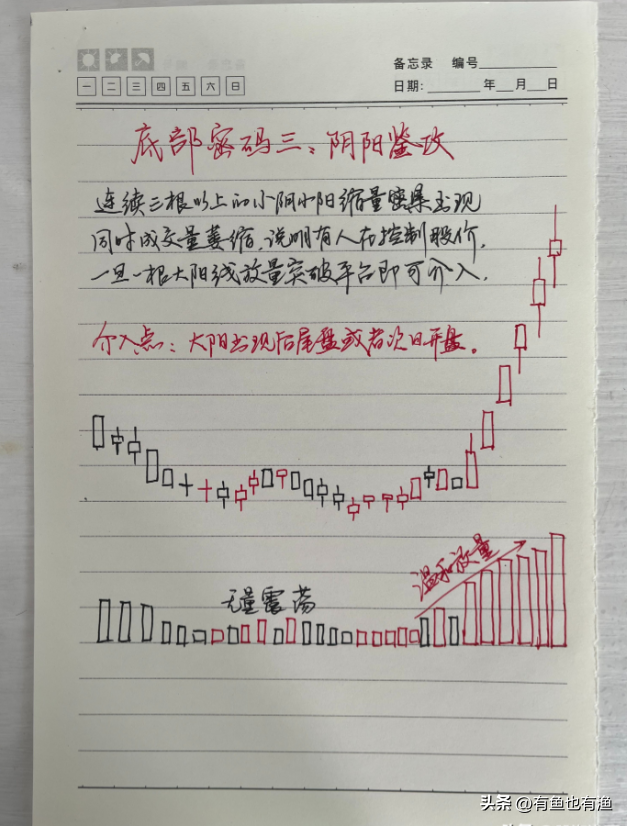 备忘录 编号
一 二 三 四 五 六 日
日期: 年 月 日
底部密码三：阴阳鉴攻
连续三根以上的小阴小阳缩量密集出现
同时成交量萎缩，说明有人在控制股价，
一旦一根大阳线放量突破平台即可介入，
介入点：大阳出现后尾盘或者次日开盘。
温和放量
无量震荡
头条 @有鱼也有渔